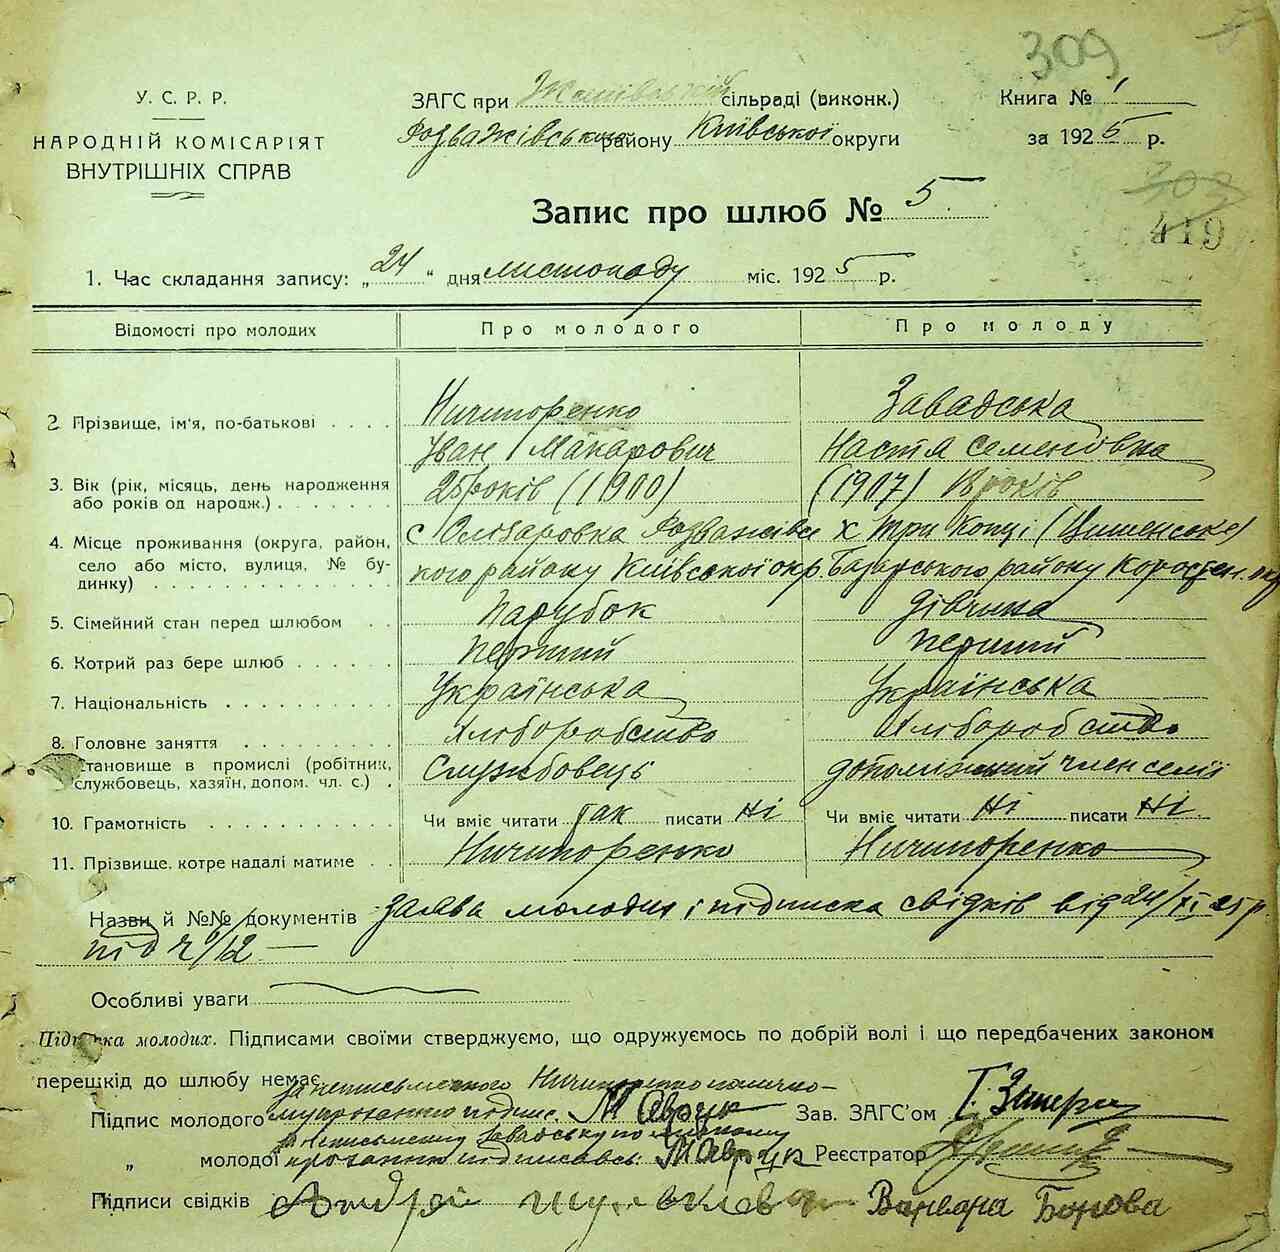 309
У. С. Р. Р.
НАРОДНІЙ КОМІСАРІЯТ
ВНУТРІШНІХ СПРАВ
ЗАГС при сільраді (виконк.)
Розважівського району Київської округи
Книга № 1
за 1925 р.
309
419
Запис про шлюб № 5
1. Час складання запису: „24“ дня листопаду міс. 1925 р.
Відомості про молодих Про молодого Про молоду
2 Прізвище, ім'я, по-батькові Ничипоренко Завадська
Іван Макарович Настя Семеновна
3. Вік (рік, місяць, день народження або років од народж.) 25 років (1900) (1907) 18 років
4. Місце проживання (округа, район, село або місто, вулиця, № будинку) с Олізаровка Розважівс х Три Копці
кого району Київської окр. Базарського району Коростен. окр
5. Сімейний стан перед шлюбом Парубок дівчина
6. Котрий раз бере шлюб перший перший
7. Національність Українська Українська
8. Головне заняття Хліборобство Хліборобство
Становище в промислі (робітник, службовець, хазяїн, допом. чл. с.) Службовець член семії
10. Грамотність Чи вміє читати так писати Ні Чи вміє читати Ні писати Ні
11. Прізвище, котре надалі матиме Ничипоренко Ничипоренко
Назви й №№ документів Заява молодих і підписка свідків від 24/XI 25 р
під ч
Особливі уваги
Підписка молодих. Підписами своїми стверджуємо, що одружуємось по добрій волі і що передбачених законом
перешкід до шлюбу немає
за неписьменного Ничипоренко
Підпис молодого підпис. Зав. ЗАГС'ом
за неписьменну Завадську
„ молодої підписавсь Реєстратор
Підписи свідків Андрей Варвара